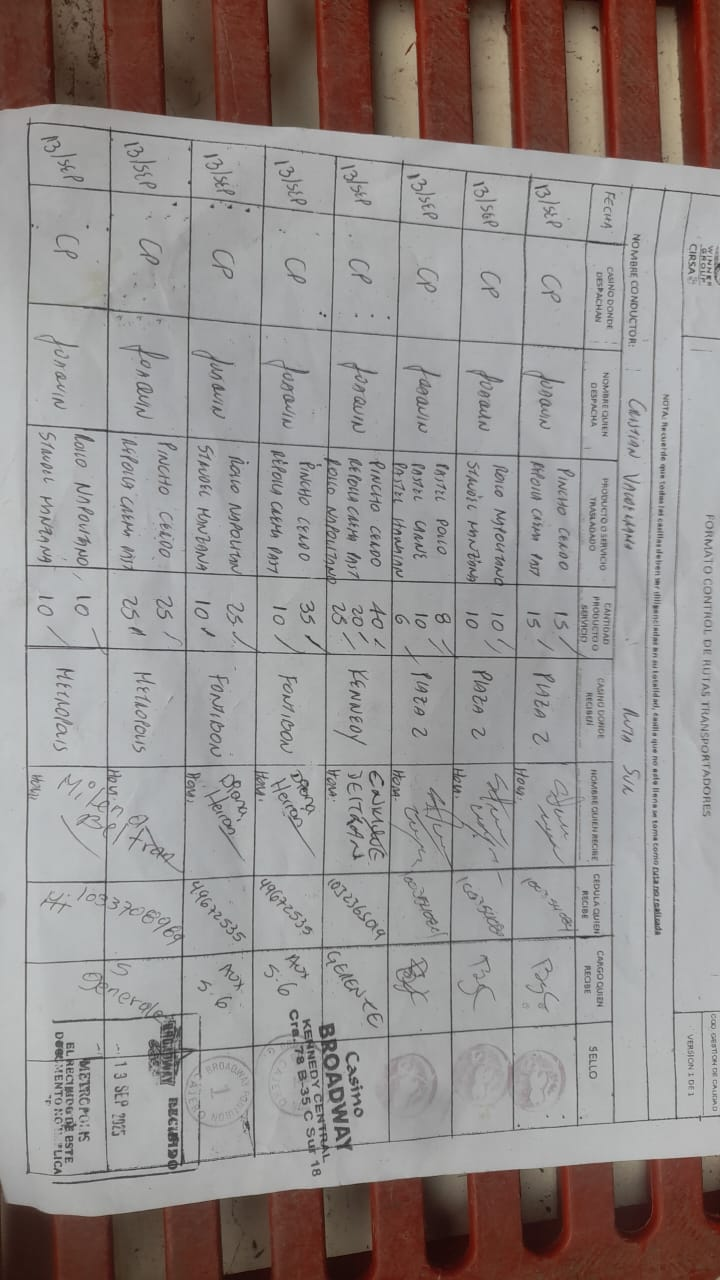 WINNER GROUP CIRSA
FORMATO CONTROL DE RUTAS TRANSPORTADORES
COD GESTION DE CALIDAD
VERSION 1 DE 1
NOTA: Recuerde que todas las casillas deben ser diligenciadas en su totalidad, casilla que no este llena se toma como ruta no realizada
NOMBRE CONDUCTOR: CRISTIAN VALDERRAMA RUTA SUR
FECHA CASINO DONDE DESPACHAN NOMBRE QUIEN DESPACHA PRODUCTO O SERVICIO TRASLADADO CANTIDAD PRODUCTO O SERVICIO CASINO DONDE RECIBEN NOMBRE QUIEN RECIBE CEDULA QUIEN RECIBE CARGO QUIEN RECIBE SELLO
13/SEP CP JOAQUIN PINCHO CERDO 15 PLAZA 2
REPOLLA CREMA PAST 15
Hora:
13/SEP CP JOAQUIN ROLLO NAPOLITANO 10 PLAZA 2
STRUDEL MANZANA 10
Hora:
13/SEP CP JOAQUIN PASTEL POLLO 8 PLAZA 2
PASTEL CARNE 10
PASTEL HAWAIAN 6
Hora:
13/SEP CP JOAQUIN PINCHO CERDO 40 KENNEDY ENRIQUE BELTRAN GERENTE
REPOLLA CREMA PAST 20
ROLLO NAPOLITANO 25
Hora:
Casino
BROADWAY
KENNEDY CENTRAL
Cra. 78 B 35 C Sur 18
13/SEP CP JOAQUIN PINCHO CERDO 35 FONTIBON Diana Herran 49672535 AUX S.G
REPOLLA CREMA PAST 10
Hora:
13/SEP CP JOAQUIN ROLLO NAPOLITAN 25 FONTIBON Diana Herran 49672535 AUX S.G
STRUDEL MANZANA 10
Hora:
BROADWAY
1
CAJERO
13/SEP CP JOAQUIN PINCHO CERDO 25 METROPOLIS
REPOLLA CREMA PAST 25
Hora:
S Generales
BROADWAY RECIBIDO
13 SEP 2025
13/SEP CP JOAQUIN ROLLO NAPOLITANO 10 METROPOLIS
STRUDEL MANZANA 10
Hora:
METROPOLIS
EL RECIBIDO DE ESTE
DOCUMENTO NO IMPLICA